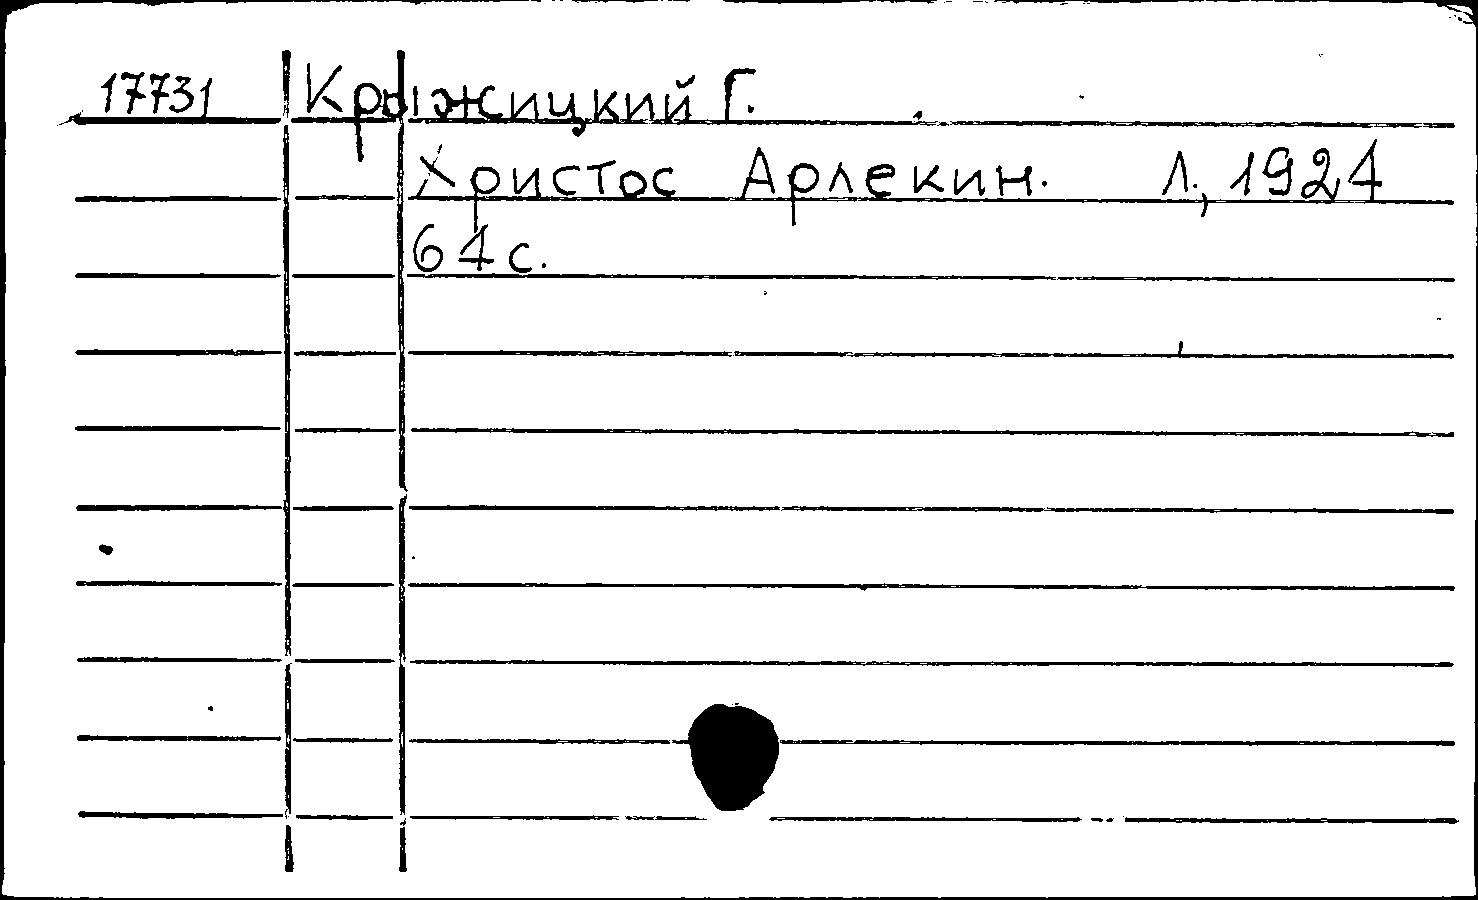 17731 Крыжицкий Г.
Христос Арлекин. Л., 1924
64 с.